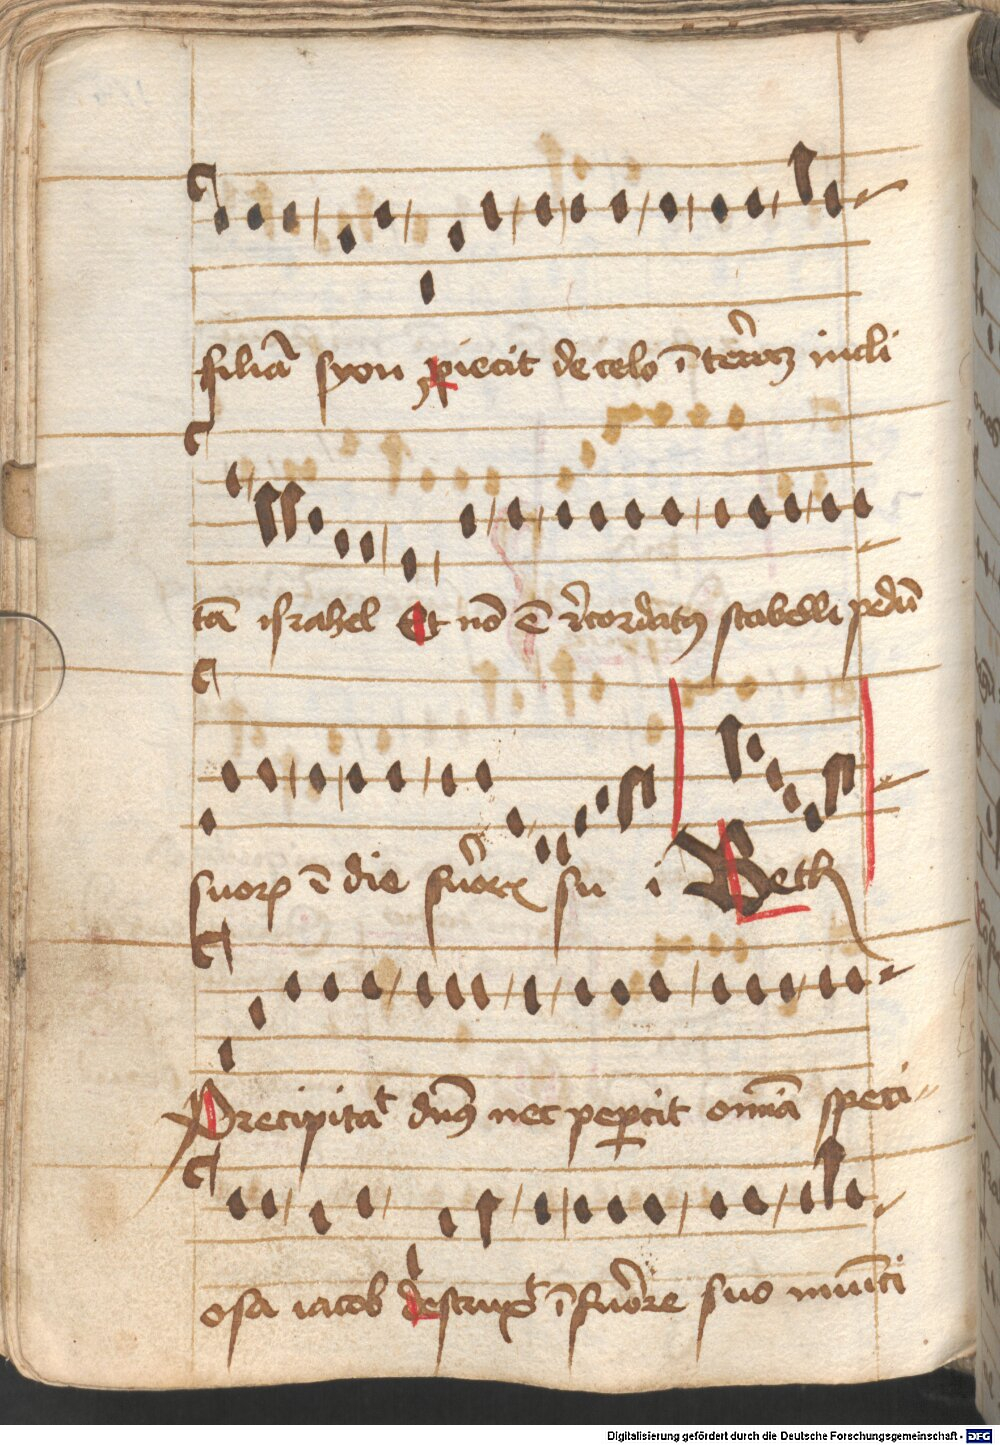 filiā syon ꝓiecit de celo ī terrā incli
tā israhel Et nō ē recordatꝰ scabelli pedū
suorꝝ ī die furorꝭ su i Beth
Precipitaᵗ dnꝰ nec peꝑcit omīa speci
osa iacob destruxᵗ ī furore suo muniti
Digitalisierung gefördert durch die Deutsche Forschungsgemeinschaft - DFG